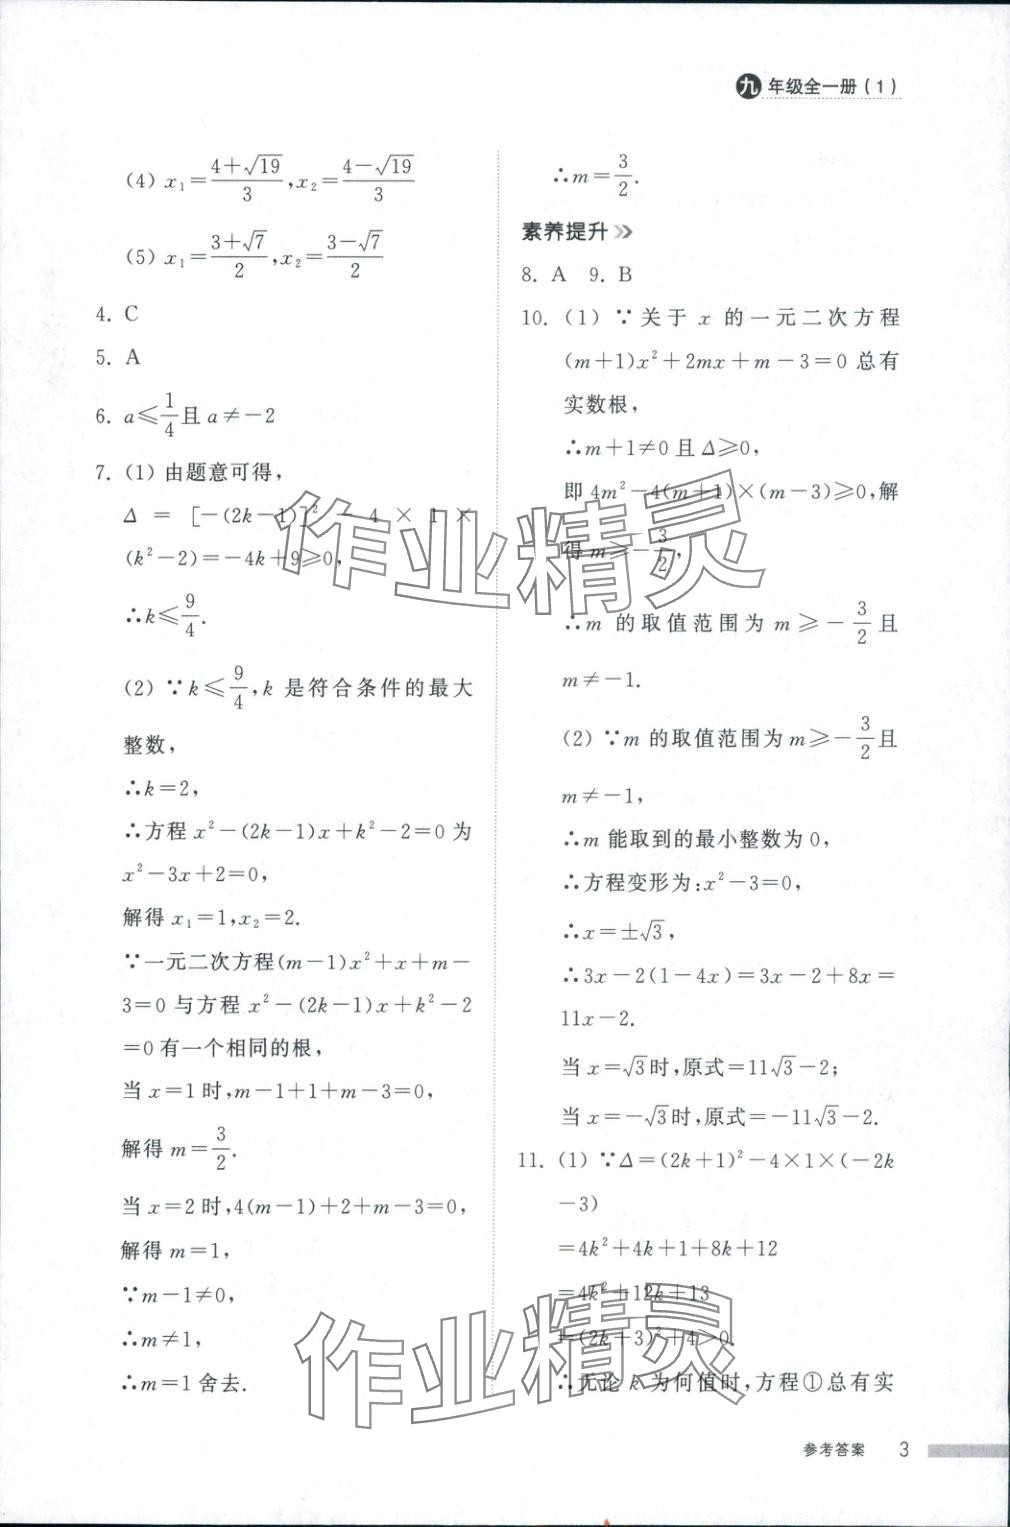 九年级全一册(1)
(4) x₁=(4+√19)/3,x₂=(4−√19)/3
(5) x₁=(3+√7)/2,x₂=(3−√7)/2
4. C
5. A
6. a≤1/4且a≠−2
7. (1) 由题意可得,
Δ=[−(2k−1)]²−4×1×
(k²−2)=−4k+9≥0,
∴k≤9/4.
(2) ∵k≤9/4,k是符合条件的最大
整数,
∴k=2,
∴方程x²−(2k−1)x+k²−2=0为
x²−3x+2=0,
解得x₁=1,x₂=2.
∵一元二次方程(m−1)x²+x+m−
3=0与方程x²−(2k−1)x+k²−2
=0有一个相同的根,
当x=1时,m−1+1+m−3=0,
解得m=3/2.
当x=2时,4(m−1)+2+m−3=0,
解得m=1,
∵m−1≠0,
∴m≠1,
∴m=1舍去.
∴m=3/2.
素养提升
8. A 9. B
10. (1) ∵关于x的一元二次方程
(m+1)x²+2mx+m−3=0总有
实数根,
∴m+1≠0且Δ≥0,
即4m²−4(m+1)×(m−3)≥0,解
得m≥−3/2,
∴m的取值范围为m≥−3/2且
m≠−1.
(2) ∵m的取值范围为m≥−3/2且
m≠−1,
∴m能取到的最小整数为0,
∴方程变形为:x²−3=0,
∴x=±√3,
∴3x−2(1−4x)=3x−2+8x=
11x−2.
当x=√3时,原式=11√3−2;
当x=−√3时,原式=−11√3−2.
11. (1) ∵Δ=(2k+1)²−4×1×(−2k
−3)
=4k²+4k+1+8k+12
=4k²+12k+13
=(2k+3)²+4>0.
∴无论k为何值时,方程①总有实
参考答案 3
作业精灵
作业精灵